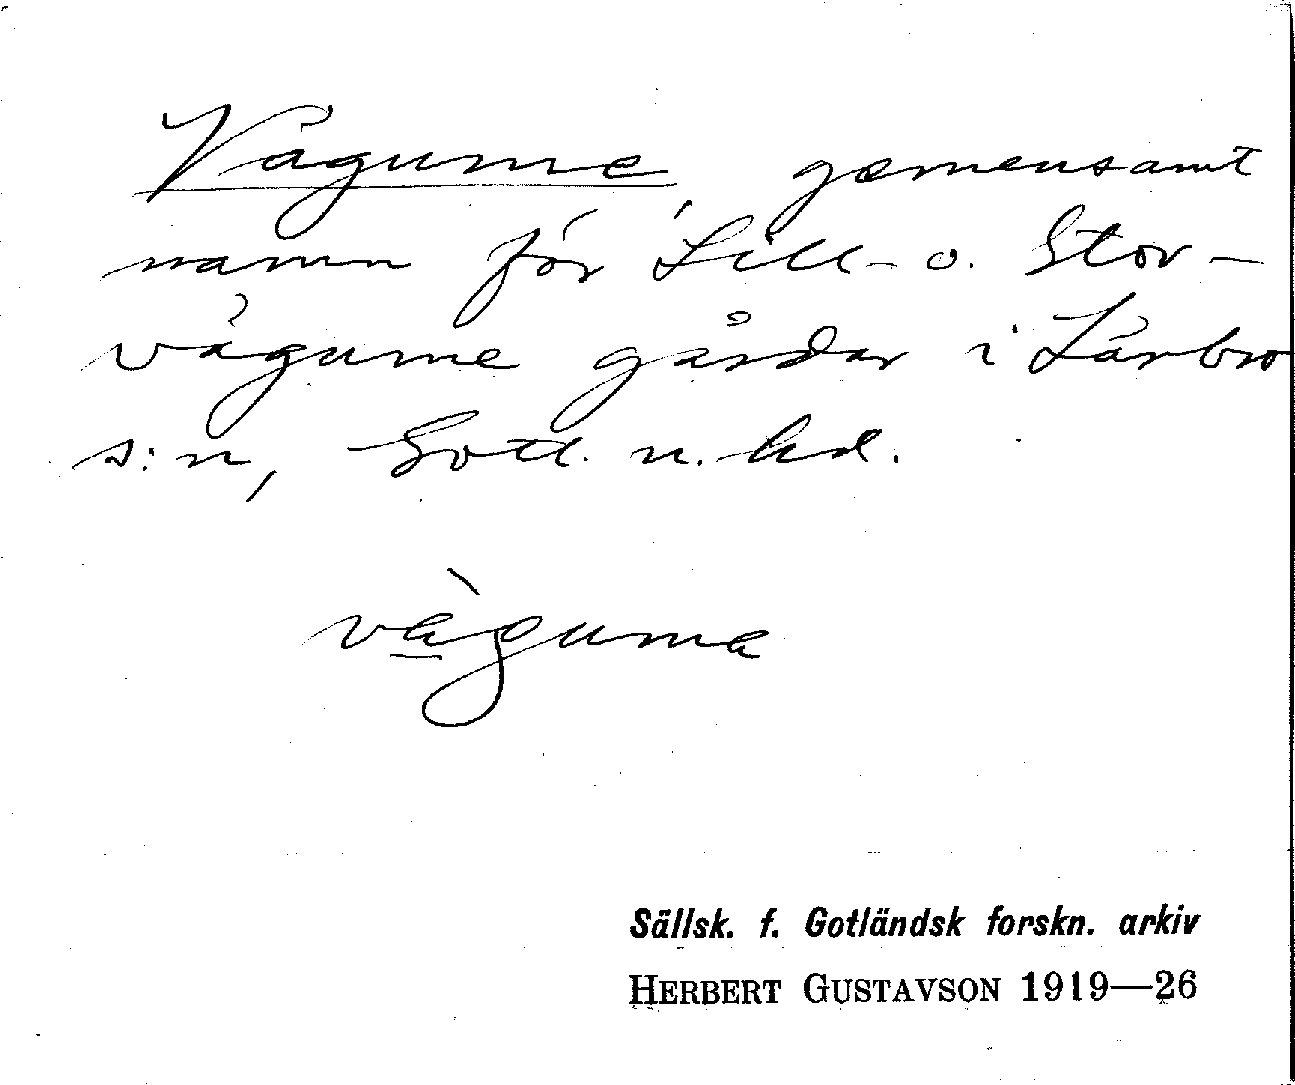 Vägume, gemensamt
namn för Lill- o. Stor-
vägume gårdar i Lärbro
s:n, Gotl. n. hd.
vàguma
Sällsk. f. Gotländsk forskn. arkiv
HERBERT GUSTAVSON 1919—26